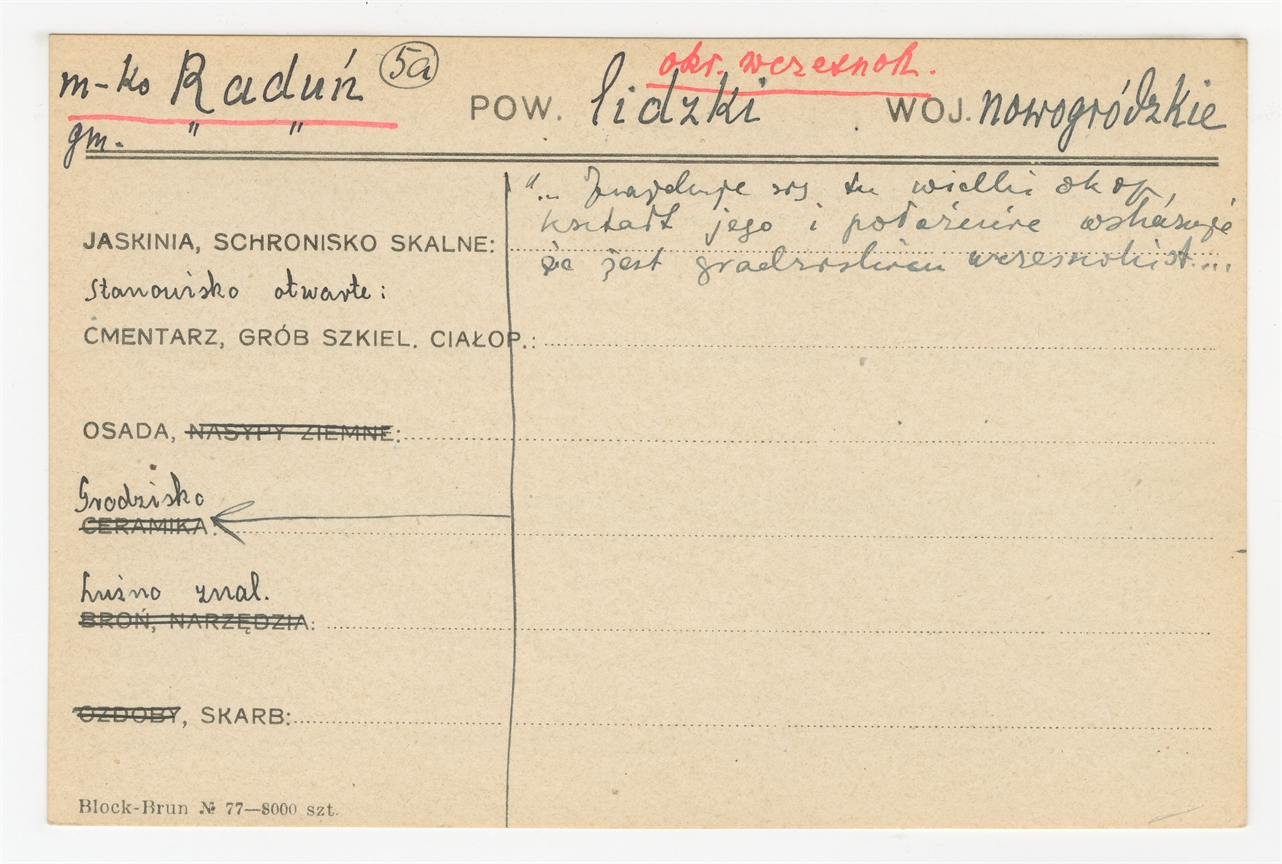 okr. wczesnoh.
m-ko Raduń 5a POW. lidzki WOJ. nowogródzkie
gm. " "
"... Znajduje się tu wielki okop,
kształt jego i położenie wskazuje
JASKINIA, SCHRONISKO SKALNE:
że jest grodziskiem wczesnohist...
Stanowisko otwarte:
CMENTARZ, GRÓB SZKIEL. CIAŁOP.:
OSADA, NASYPY ZIEMNE:
Grodzisko
CERAMIKA:
Luźno znal.
BROŃ, NARZĘDZIA:
OZDOBY, SKARB:
Block-Brun № 77—8000 szt.